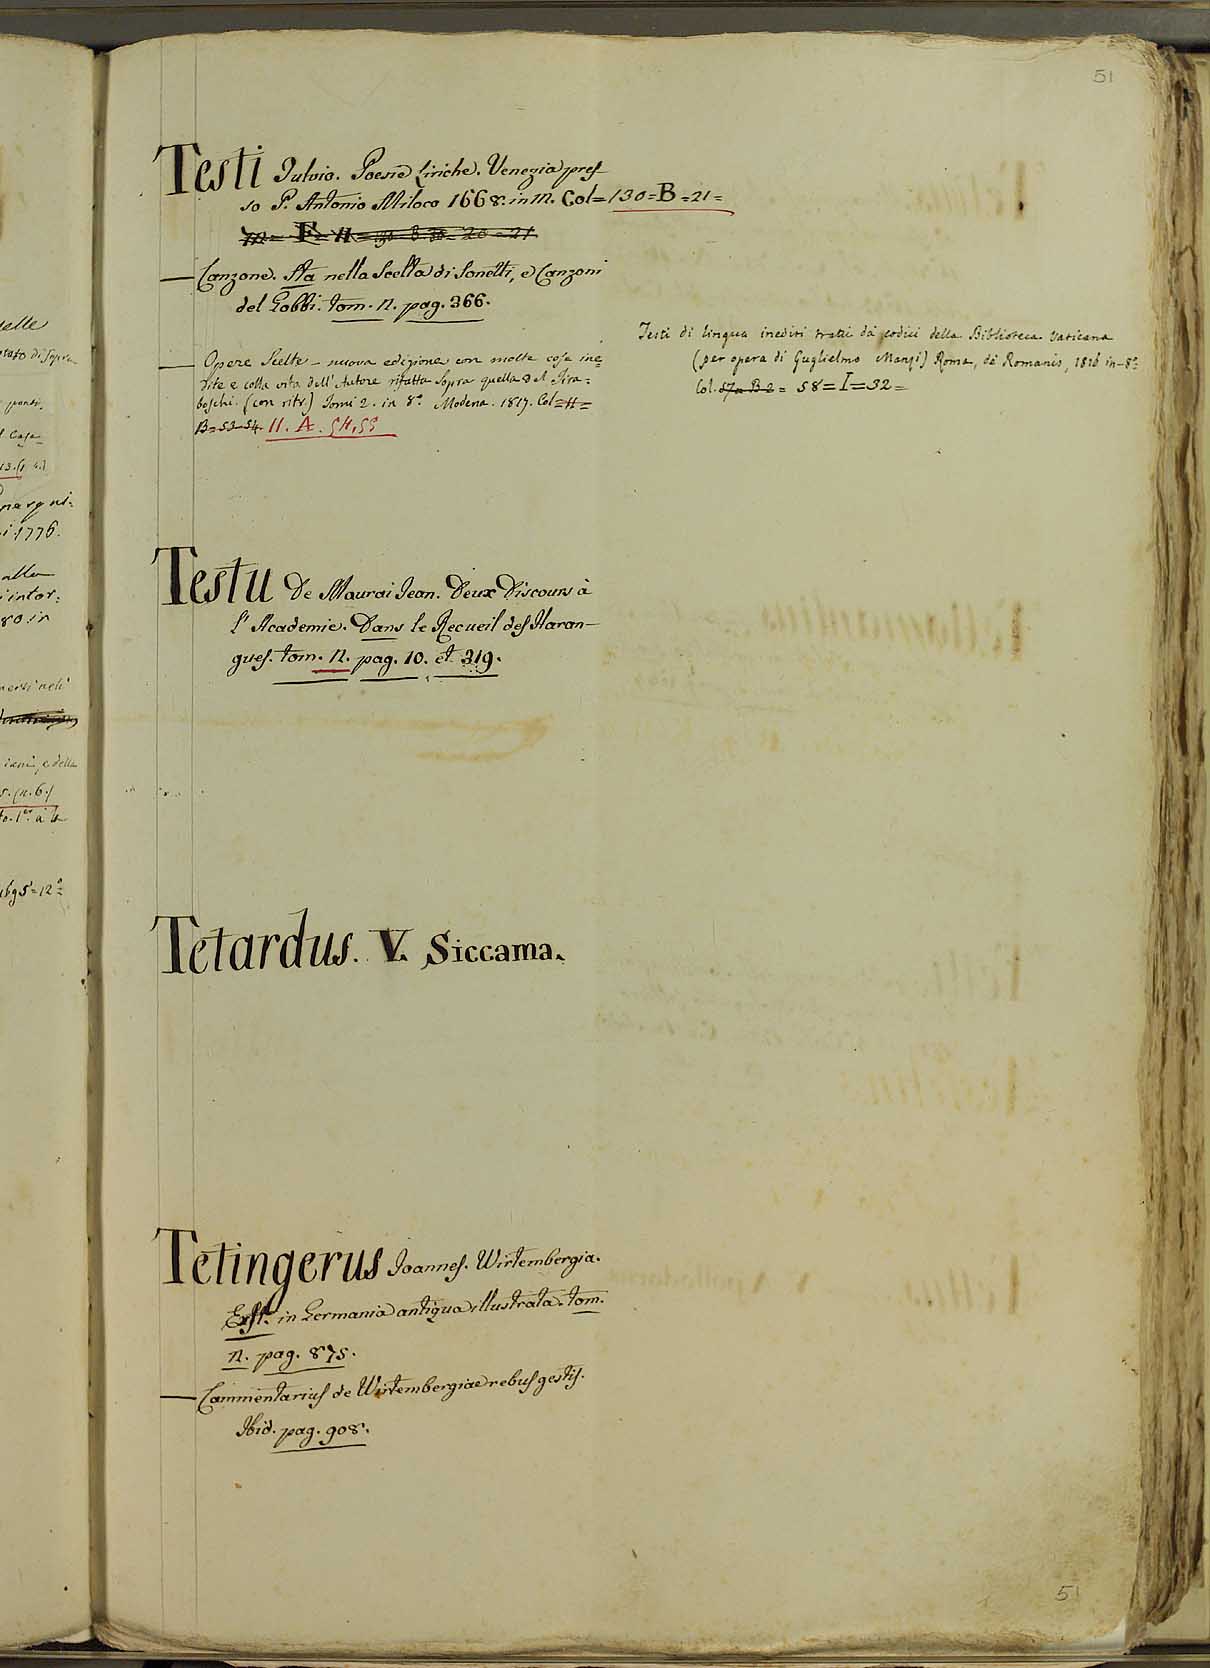 51
Testi Fulvio. Poesie Liriche. Venezia pres
so P. Antonio Miloco 1668. in 12. Col=130=B=21=
Canzone. Sta nella Scelta di Sonetti, e Canzoni
del Gobbi. tom. 11. pag. 366.
Opere Scelte - nuova edizione con molte cose ine=
dite e colla vita dell'Autore rifatta sopra quella del Tira=
boschi. (con ritr.) Tomi 2. in 8.º Modena. 1817. Col=11=
B=53-54. 11. A. 54,55
Testi di lingua inediti tratti da' codici della Biblioteca Vaticana
(per opera di Guglielmo Manzi) Roma, de' Romanis, 1816 in-8º
Col. 57= B 2= 58=I=32=
Testu De Mauroi Jean. Deux Discours à
l'Academie. Dans le Recueil des Haran-
gues. tom. 11. pag. 10. et 319.
Tetardus. V. Siccama.
Tetingerus Joannes. Wirtembergia.
Exst. in Germania antiqua illustrata. tom.
11. pag. 875.
Commentarius de Wirtembergiae rebus gestis.
Ibid. pag. 908.
51